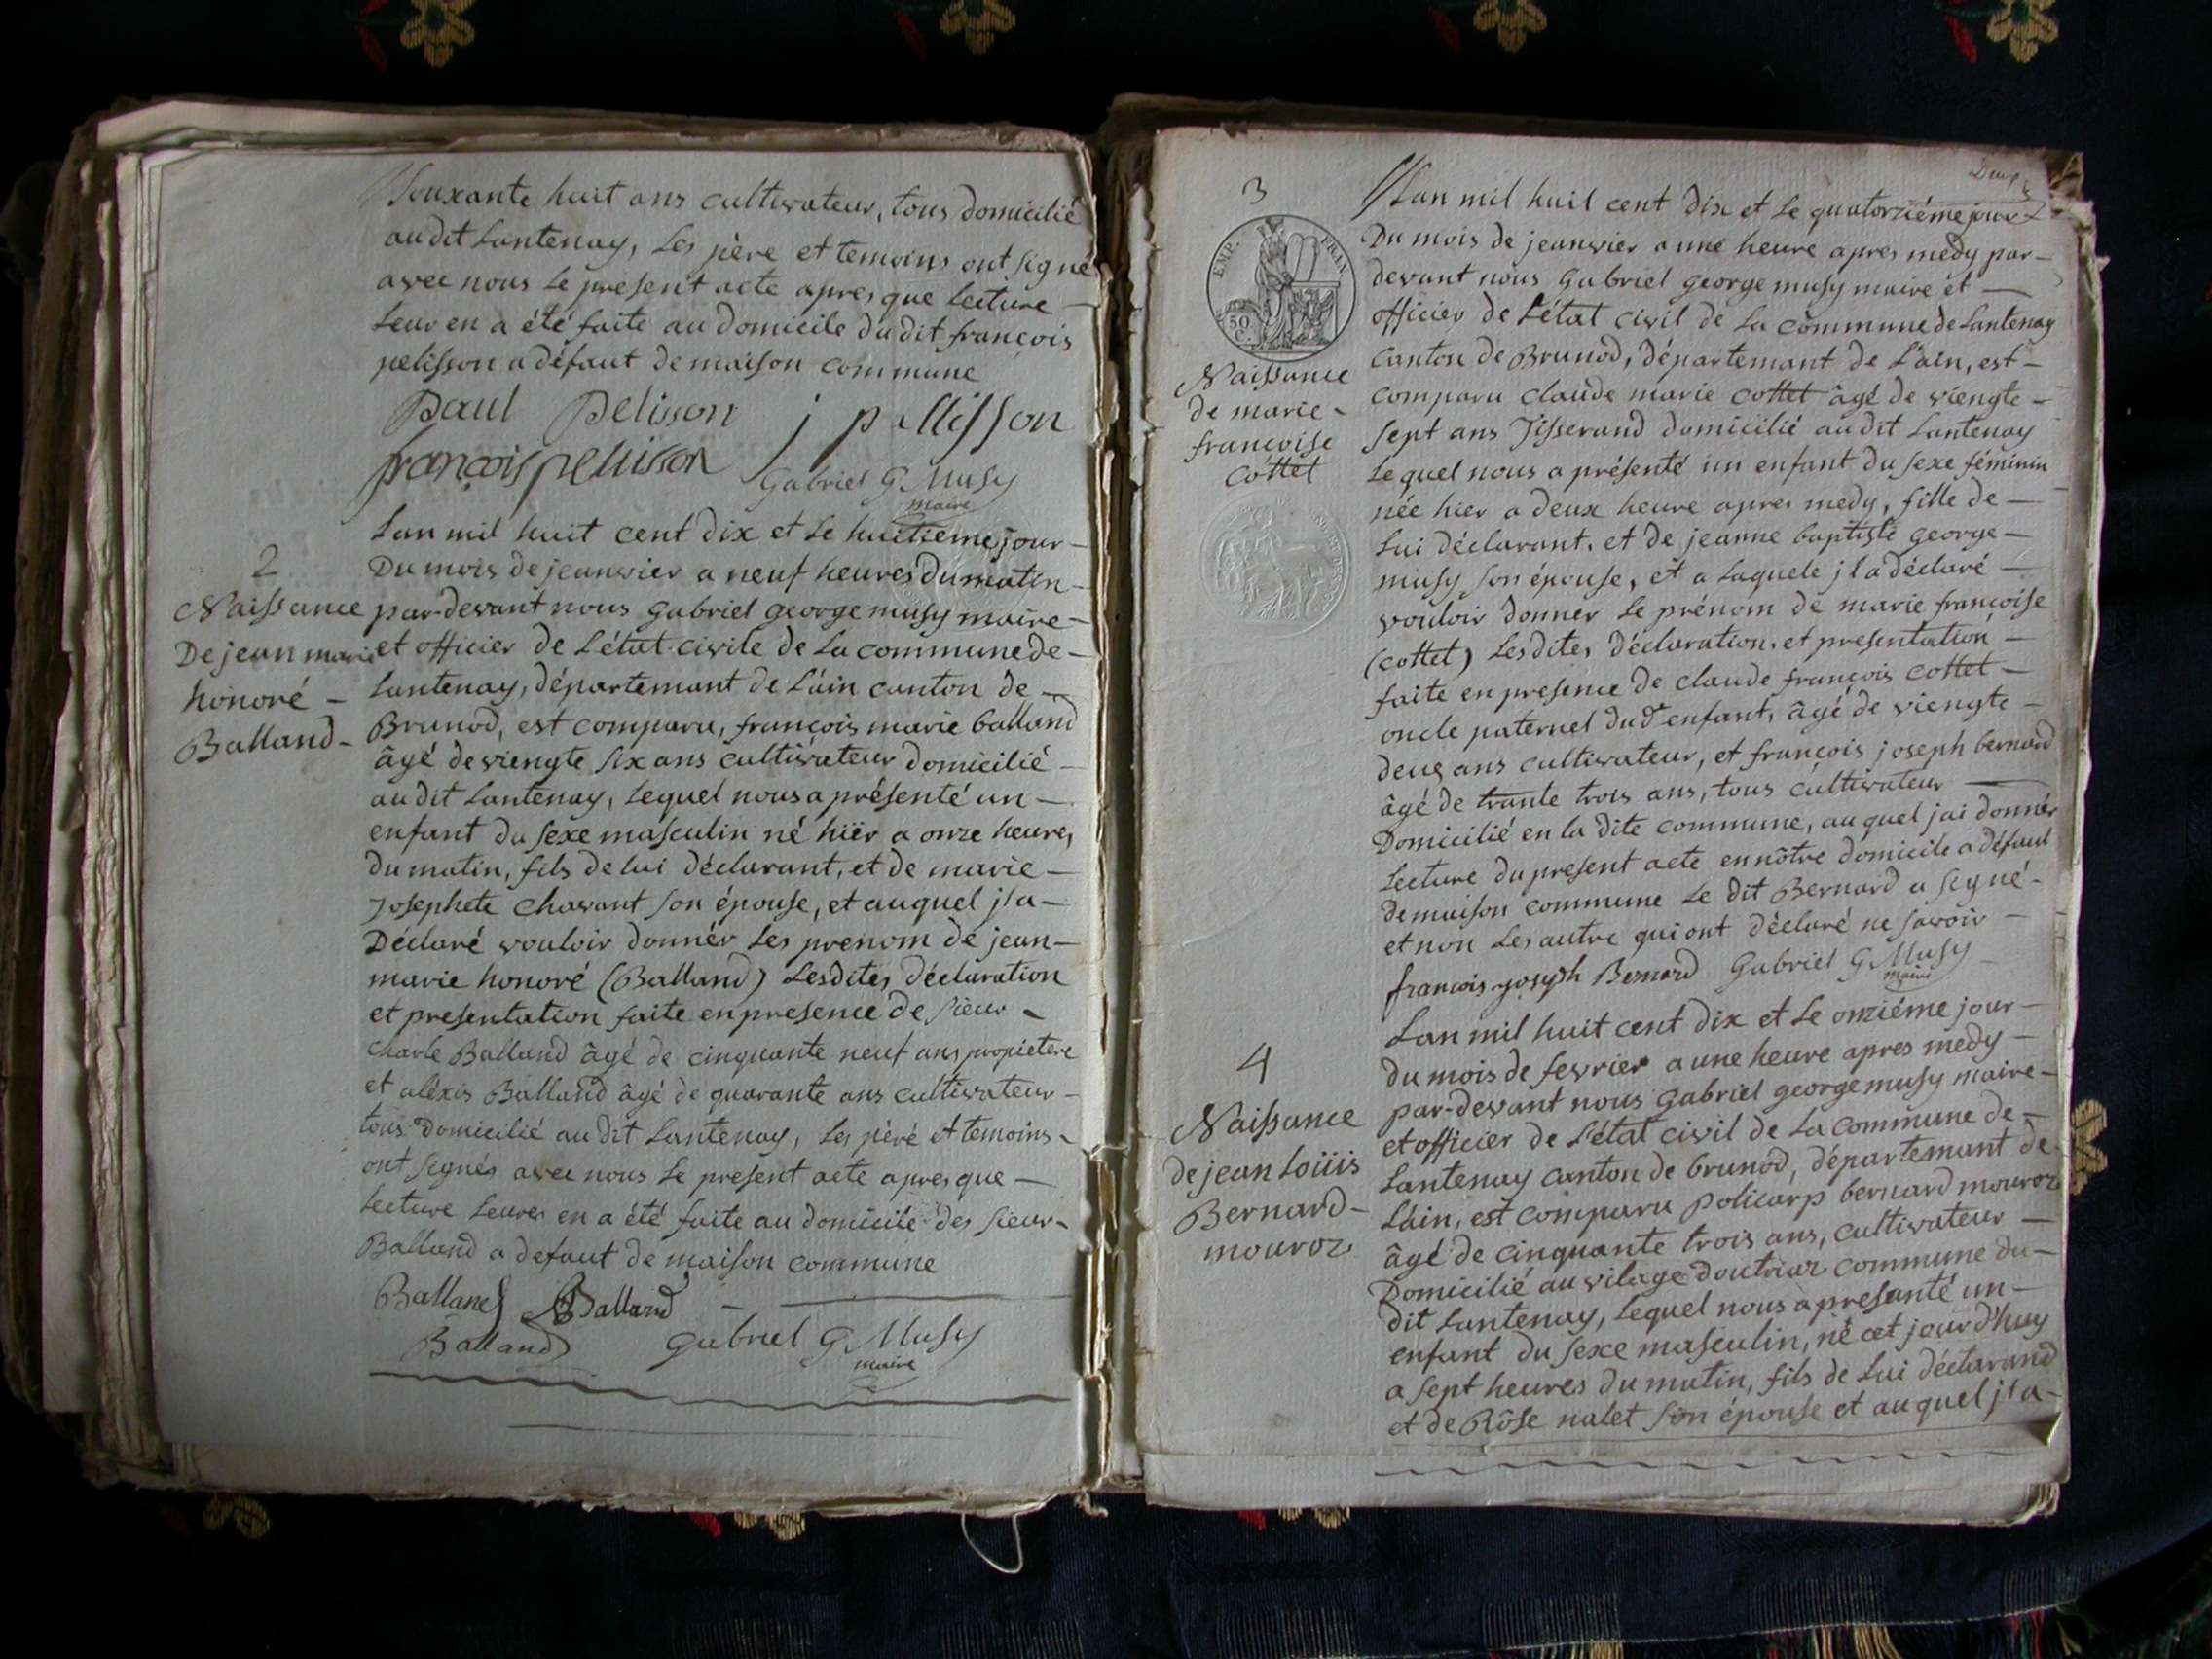 souxante huit ans cultivateur, tous domicilié
audit Lantenay, Les père et temoins ont signé
avec nous le present acte apres que lecture —
leur en a été faite au domicile du dit françois
pelisson a défaut de maison commune
paul pelisson j pellisson
françois pellisson
Gabriel G Musy
maire
2
Naissance
De jean marie
honoré —
Balland -
Lan mil huit cent dix et le huitieme jour —
Du mois de jeanvier a neuf heures du matin —
par-devant nous Gabriel george musy maire —
et officier de L'état civile de La commune de —
Lantenay, département de L'ain canton de —
Brunod, est comparu, françois marie balland
âgé de viengte six ans cultivateur domicilié —
au dit Lantenay, Lequel nous a présenté un —
enfant du sexe masculin né hiër a onze heures
du matin, fils de lui déclarant, et de marie —
Josephete Chavant son épouse, et auquel jl a —
Déclaré vouloir donnér Les prenom de jean —
marie honoré (Balland) Lesdites déclaration
et presentation faite en presence de sieur —
Charle Balland âgé de cinquante neuf ans propietere
et aléxis Balland âgé de quarante ans cultivateur —
tous Domicilié au dit Lantenay, Les péré et temoins —
ont signés avec nous Le present acte apres que —
Lecture Leures en a été faite au domicile des sieur —
Balland a defaut de maison commune
Balland Balland —
Balland Gabriel G Musy
maire
3
EMP. FRAN.
50 C.
Naissance
de marie -
françoise
Cottet
Lan mil huit cent Dix et le quatorziéme jour
Du mois de jeanvier a une heure apres medy par —
devant nous Gabriel george musy maire et —
officier de L'état civil de La commune de Lantenay
Canton de Brunod, département de L'ain, est —
comparu claude marie cottet âgé de viengte —
sept ans Tisserand domicilié audit Lantenay
Lequel nous a présenté un enfant du sexe féminin
née hier a deux heure apres medy, fille de —
Lui déclarant, et de jeanne baptiste george —
musy son épouse, et a Laquele jl a déclaré —
vouloir donner Le prénom de marie françoise
(cottet) Lesdites déclaration, et presentation —
faite en presence de claude françois cottet —
oncle paternel dud enfant, âgé de viengte —
deux ans cultivateur, et françois joseph bernard
âgé de trante trois ans, tous cultivateur —
Domicilié en la dite commune, auquel jai donnér
Lecture du present acte en nôtre domicile a défaut
de maison commune Le dit Bernard a segné —
et non Les autre qui ont déclaré ne savoir —
françois joseph Bernard Gabriel G Musy
maire
4
Naissance
de jean Loüis
Bernard —
mouroz
Lan mil huit cent dix et le onziéme jour —
du mois de fevrier a une heure apres medy —
par-devant nous Gabriel george musy maire —
et officier de L'état civil de La commune de —
Lantenay canton de brunod, département de
L'ain, est comparu policarp bernard mouroz
âgé de cinquante trois ans, cultivateur —
Domicilié au vilage doutriaz commune du —
dit Lantenay, Lequel nous a presenté un —
enfant du sexe masculin, né cet jourd'huy
a sept heures du matin, fils de Lui déclarand
et de Rôse nalet son épouse et auquel jl a —